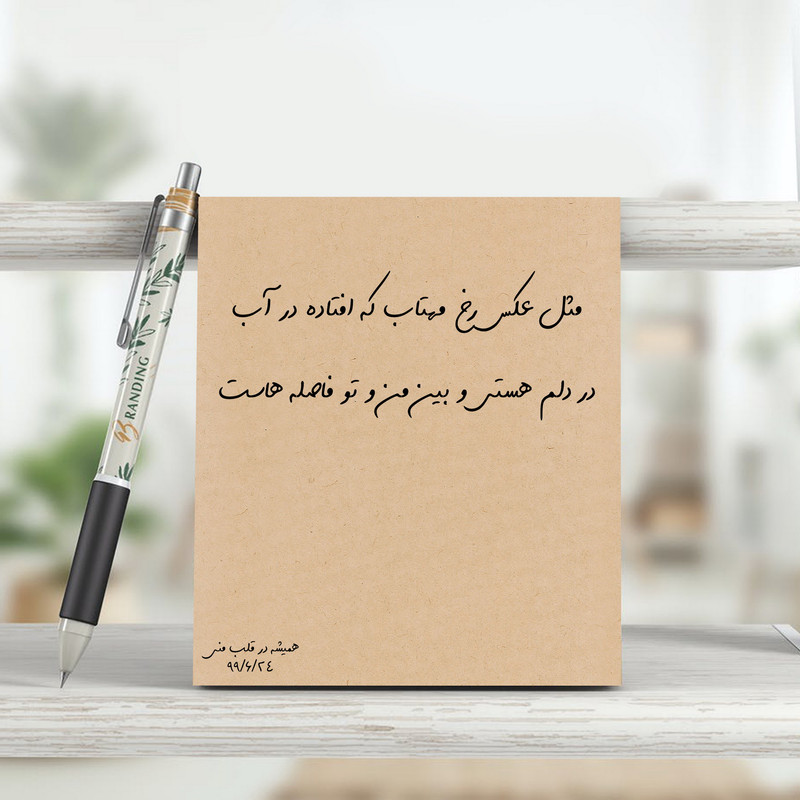 مثل عکس رخ مهتاب که افتاده در آب
در دلم هستی و بین من و تو فاصله هاست
همیشه در قلب منی
۹۹/۶/۲۴
BRANDING